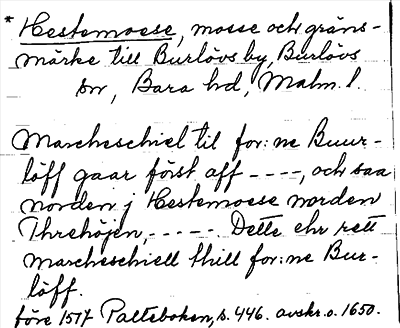 * Hestemoese, mosse och gräns-
märke till Burlövs by, Burlövs
sn, Bara hd, Malm. l.
Marcheschiel til for:ne Buur-
löff gaar först aff ----, och saa
norden j Hestemoese norden
Threhöjen, -----. Dette ehr rett
marcheschiell thill for:ne Bur-
löff.
före 1517 Palteboken, s. 446. avskr. o. 1650.